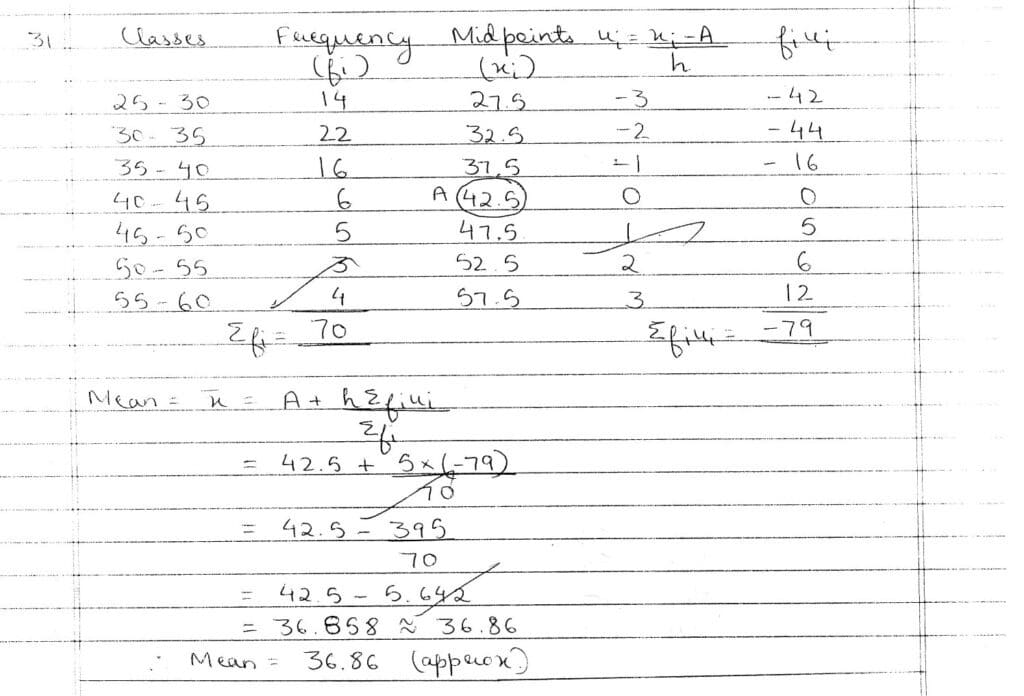 31 Classes Frequency Midpoints uᵢ = xᵢ - A fᵢuᵢ
(fᵢ) (xᵢ) h
25 - 30 14 27.5 -3 -42
30 - 35 22 32.5 -2 -44
35 - 40 16 37.5 -1 - 16
40 - 45 6 A 42.5 0 0
45 - 50 5 47.5 1 5
50 - 55 3 52.5 2 6
55 - 60 4 57.5 3 12
Σfᵢ = 70 Σfᵢuᵢ = -79
Mean = x̄ = A + hΣfᵢuᵢ
Σfᵢ
= 42.5 + 5×(-79)
70
= 42.5 - 395
70
= 42.5 - 5.642
= 36.858 ≈ 36.86
∴ Mean = 36.86 (approx)